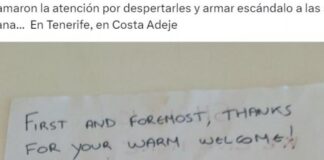 amaron la atención por despertarles y armar escándalo a las
ana... En Tenerife, en Costa Adeje
FIRST AND FOREMOST, THANKS
FOR YOUR WARM WELCOME!